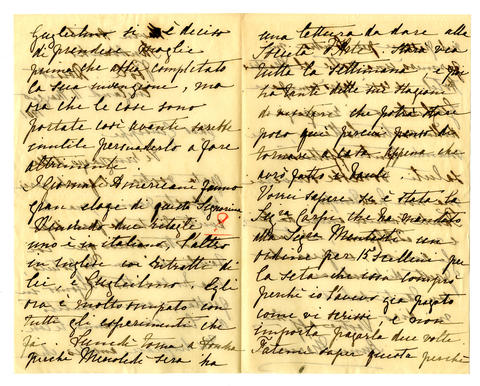 Guglielmo si è deciso
di prendere moglie
prima che abbia completato
la sua invenzione, ma
ora che le cose sono
portate così avanti sarebbe
inutile persuaderlo a fare
altrimenti.
I Giornali Americani fanno
gran elogi di questa Signorina
due ritagli
uno è in italiano, l'altro
in inglese coi ritratti di
lei, e Guglielmo. Egli
ora è molto occupato con
tutti gli esperimenti che
fa. Lunedì torna a
perchè Mercoledì sera ha
una lettura da dare alla
Società d'Arte. Starà via
tutta la settimana e poi
ha tante delle sue stazioni
di visitare che potrà stare
poco qui perciò penso di
tornare a casa appena che
avrò fatto a
Vorrei sapere se è stata la
Sigra Carpi che ha mandato
alla Sigra un
ordine per 15 Scellini per
la seta che essa comprò
perchè io l'avevo già pagato
come vi scrissi, e non
importa pagarla due volte.
Fatemi saper questo perchè